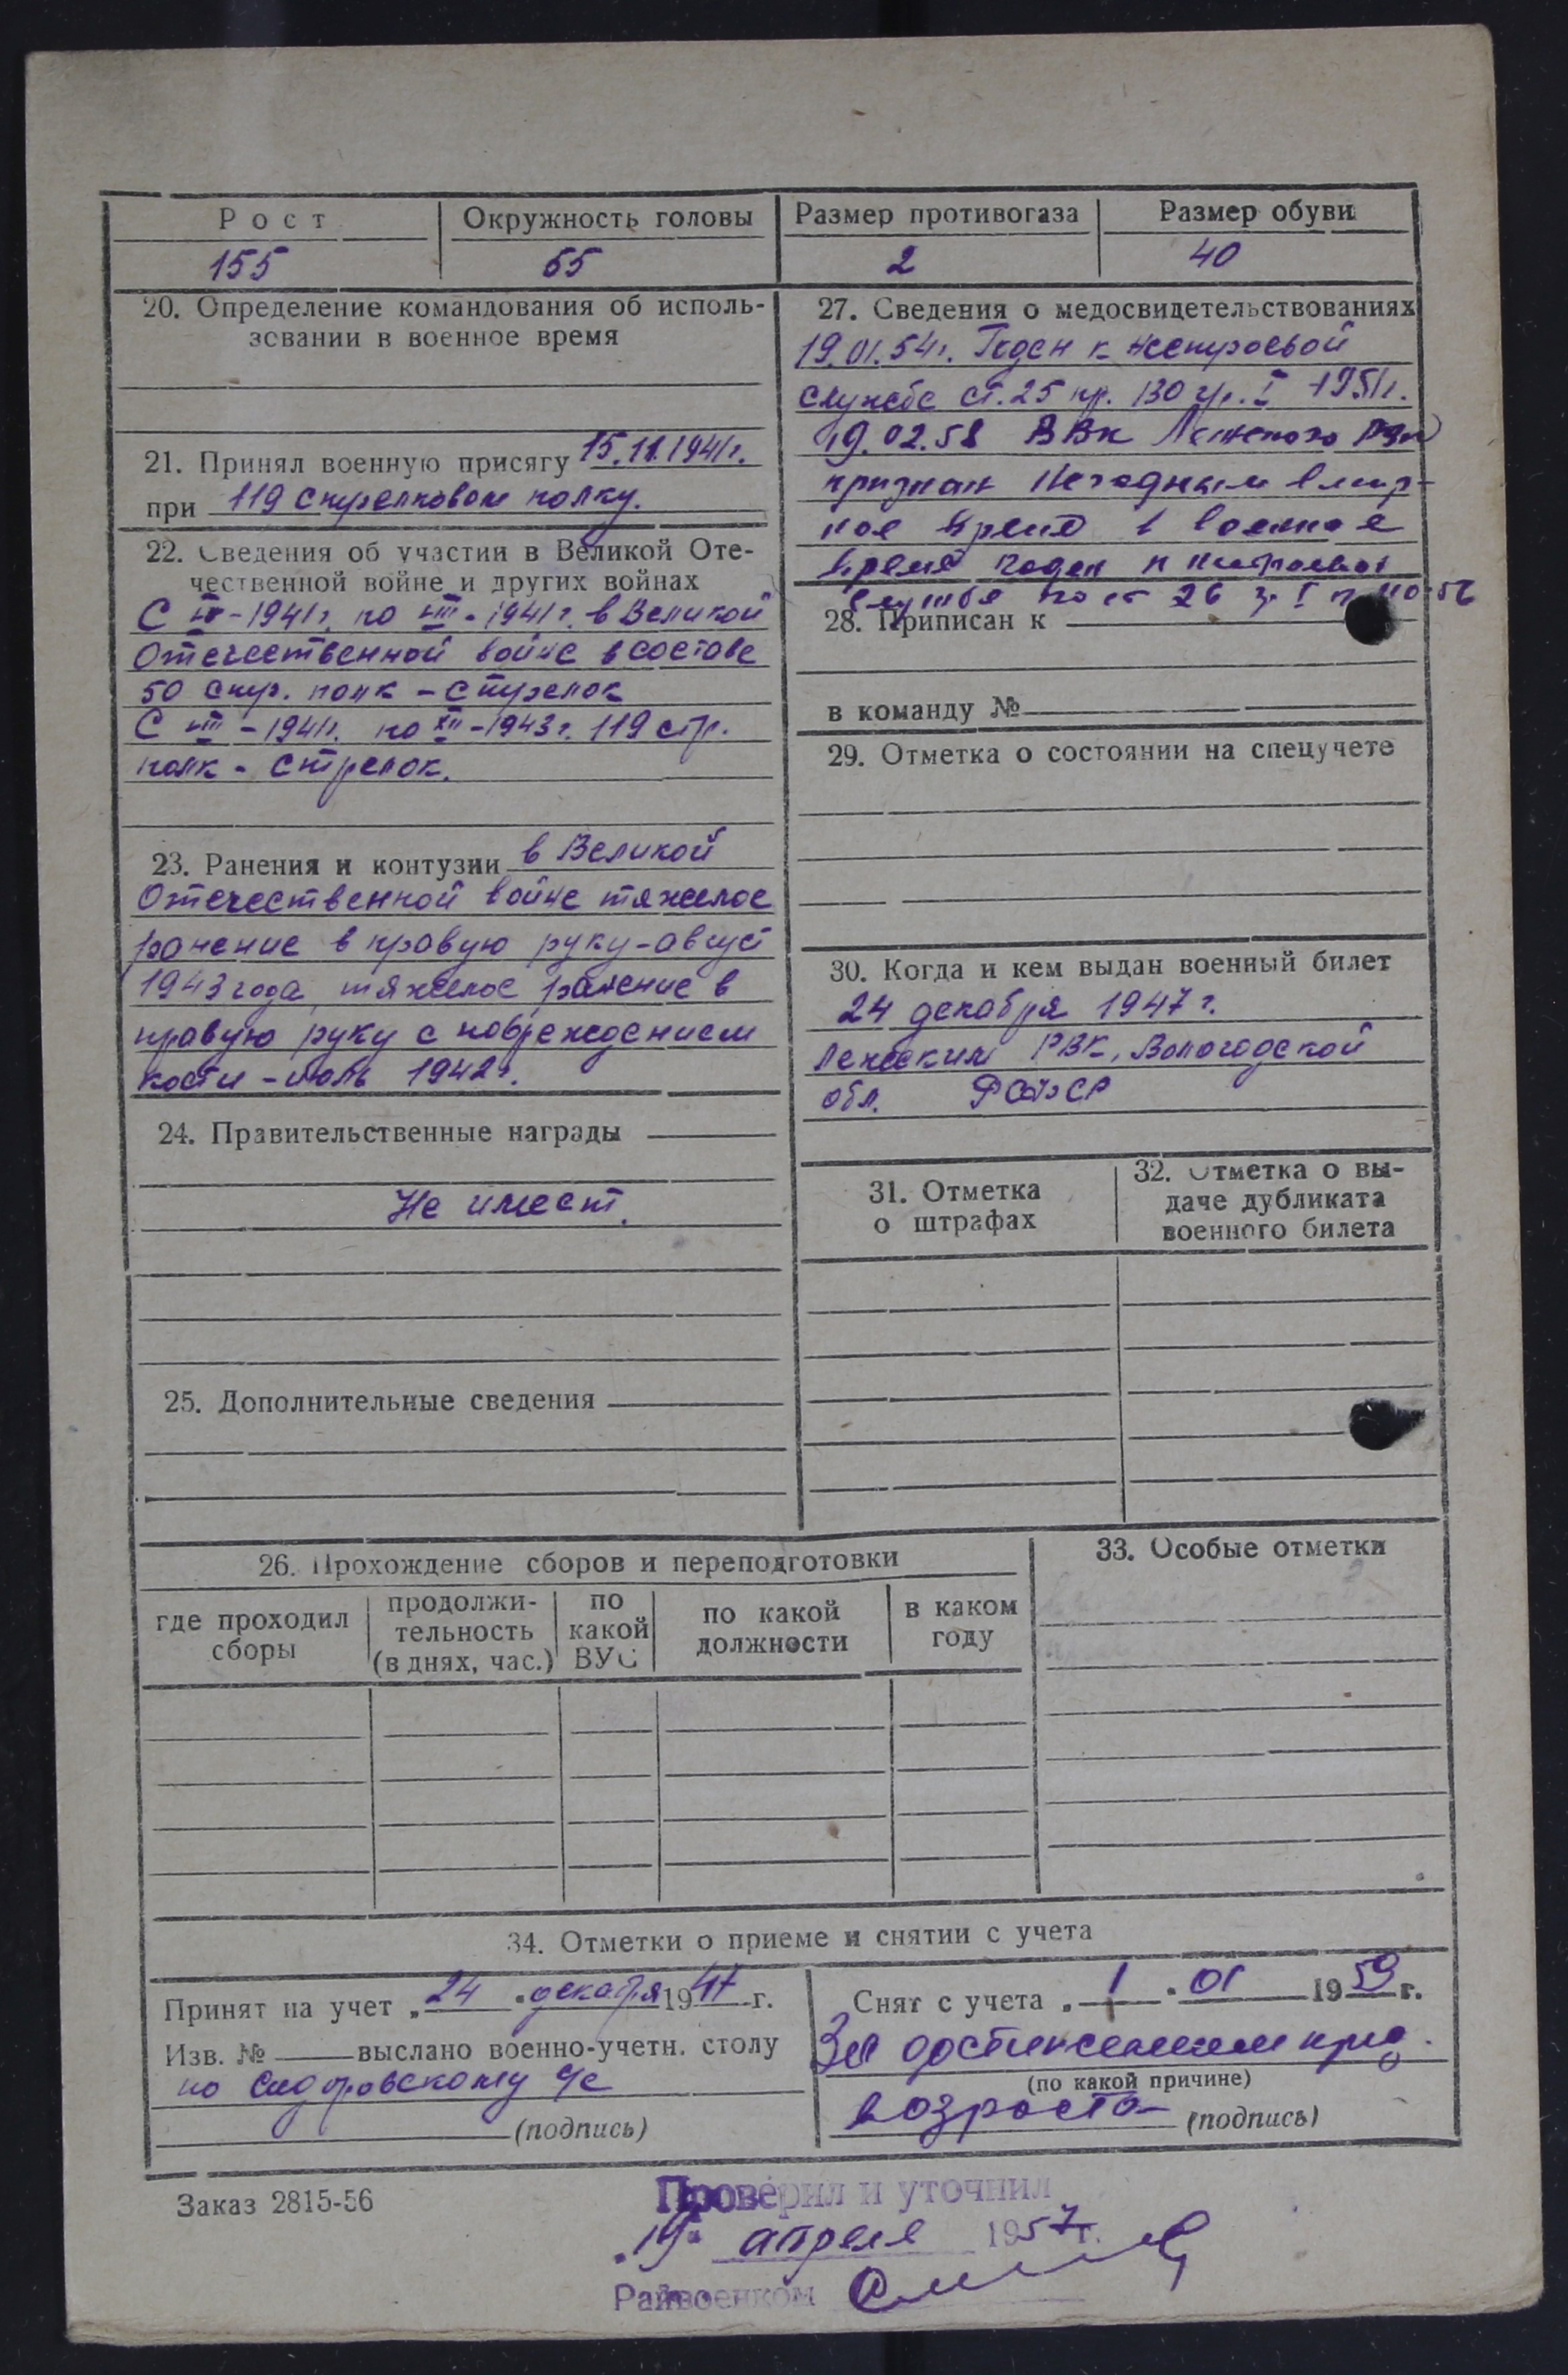 Рост
155
Окружность головы
55
Размер противогаза
2
Размер обуви
40
20. Определение командования об исполь-
зовании в военное время
21. Принял военную присягу 15.11.1941г.
при 119 стрелковом полку.
22. Сведения об участии в Великой Оте-
чественной войне и других войнах
С -1941г. по VIII-1941г. в Великой
Отечественной войне в составе
50 стр. полк - стрелок
С VIII-1941г. по XII-1943г. 119 стр.
полк - стрелок.
23. Ранения и контузии в Великой
Отечественной войне тяжелое
ранение в правую руку-август
1943 года, тяжелое ранение в
правую руку с повреждением
кости - июль 1942г.
24. Правительственные награды
Не имеет.
25. Дополнительные сведения
26. Прохождение сборов и переподготовки
где проходил
сборы
продолжи-
тельность
(в днях, час.)
по
какой
ВУС
по какой
должности
в каком
году
27. Сведения о медосвидетельствованиях
19.01.54г. Годен к нестроевой
службе ст. 25 пр. 130 гр. I -1951г.
19.02.58 ВВк Ленского
признан негодным в мир-
ное время в военное
время годен к нестроевой
службе по ст 26 гр I
28. Приписан к
в команду №
29. Отметка о состоянии на спецучете
30. Когда и кем выдан военный билет
24 декабря 1947г.
Ленским РВК, Вологодской
обл. РСФСР
31. Отметка
о штрафах
32. Отметка о вы-
даче дубликата
военного билета
33. Особые отметки
34. Отметки о приеме и снятии с учета
Принят на учет „24" декабря 1947 г.
Изв. № выслано военно-учетн. столу
по Сидоровскому с/с
(подпись)
Снят с учета „1" 01 1959 г.
За достижением пред.
(по какой причине)
возраста
(подпись)
Заказ 2815-56
Проверил и уточнил
„19" апреля 1957г.
Райвоенком